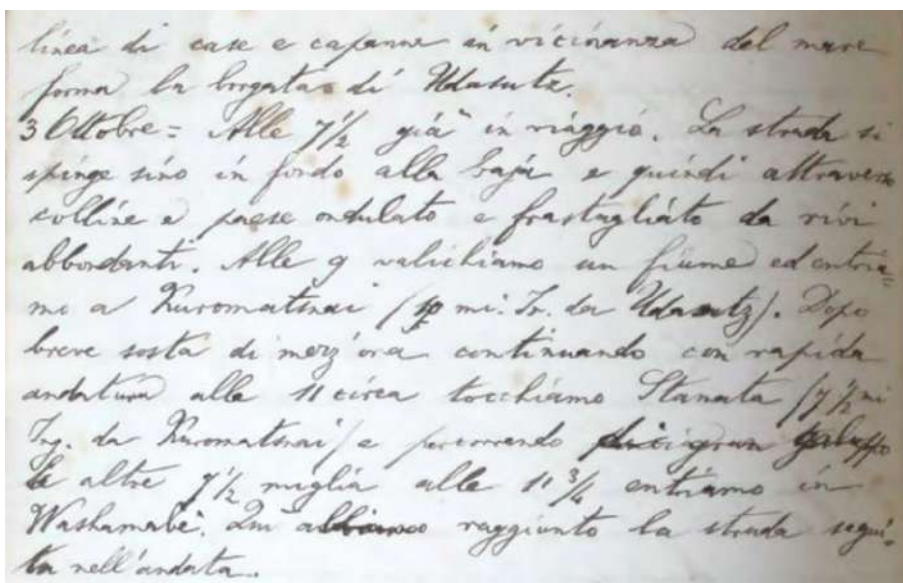 linea di case e capanne in vicinanza del mare
forma la borgata di Udasutz.
3 Ottobre = Alle 7 1/2 già in viaggio. La strada si
spinge sino in fondo alla baja e quindi attraverso
colline e paese ondulato e frastagliato da rivi
abbondanti. Alle 9 valichiamo un fiume ed entria=
mo a Kuromatsnai ( mi: In. da Udasutz). Dopo
breve sosta di mezz'ora continuando con rapida
andatura alle 11 circa tocchiamo Stanata (7 1/2 mi
Ing. da Kuromatsnai) e percorrendo gran galoppo
le altre 7 1/2 miglia alle 11 3/4 entriamo in
Washamabè. Qui abbiamo raggiunto la strada segui-
ta nell'andata.